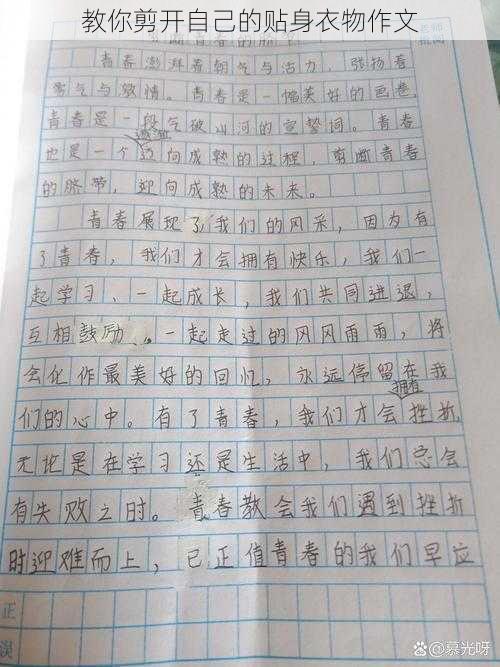 教你剪开自己的贴身衣物作文
剪断青春的脐带
青春澎湃着朝气与活力，张扬着
勇气与激情。青春是一幅美好的画卷
青春是一段气破山河的宣誓词。青春
逐渐
也是一个迈向成熟的过程，剪断青春
的脐带，迎向成熟的未来。
青春展现了我们的风采，因为有
了青春，我们才会拥有快乐，我们一
起学习、一起成长，我们共同进退，
互相鼓励，一起走过的风风雨雨，将
会化作最美好的回忆，永远停留在我
拥有
们的心中。有了青春，我们才会挫折
无论是在学习还是生活中，我们总会
有失败之时。青春教会我们遇到挫折
时迎难而上，已正值青春的我们早应
正
误
@慕光呀